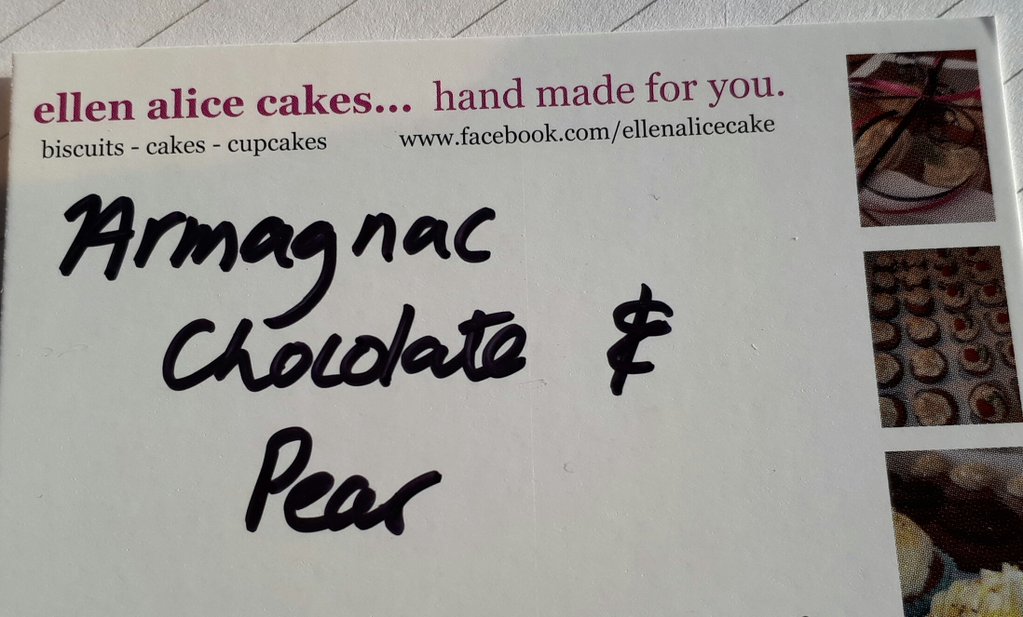 ellen alice cakes... hand made for you.
biscuits - cakes - cupcakes www.facebook.com/ellenalicecake
Armagnac
Chocolate &
Pear